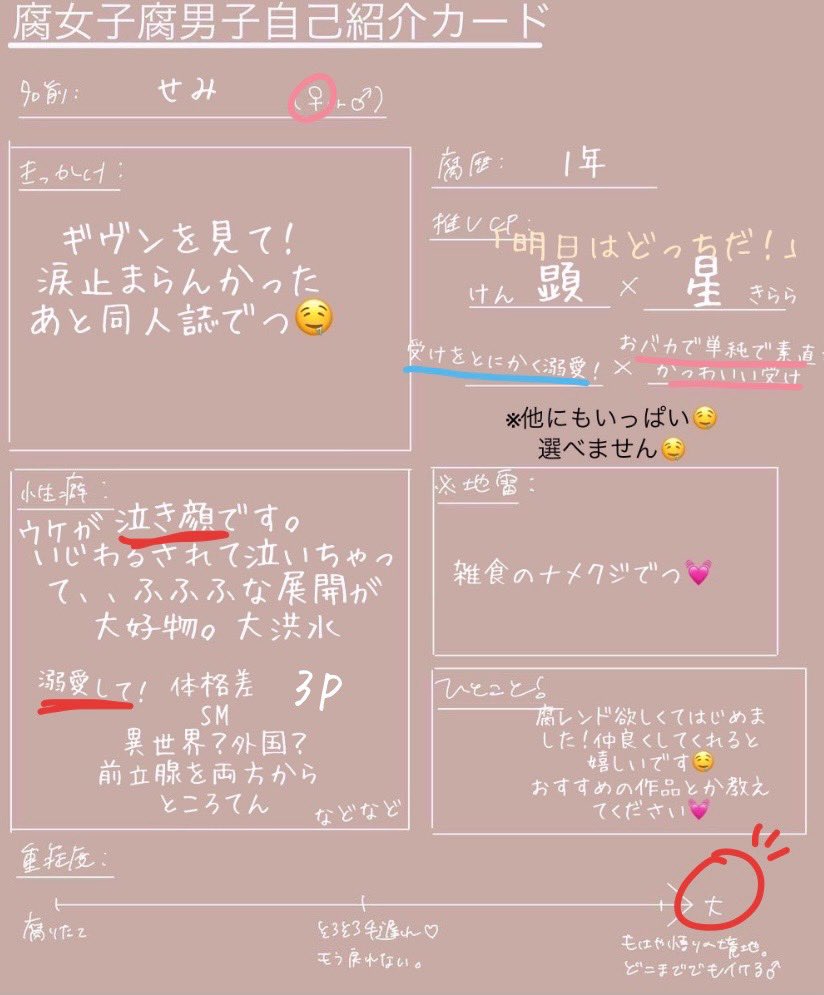 腐女子腐男子自己紹介カード
名前: せみ (♀ or ♂)
きっかけ:
ギヴンを見て!
涙止まらんかった
あと同人誌でつ🤤
腐歴: 1年
推しCP:
「明日はどっちだ!」
けん 顕 × 星 きらら
受けをとにかく溺愛! × おバカで単純で素直
かっわいい受け
※他にもいっぱい🤤
選べません🤤
性癖:
ウケが泣き顔です。
いじわるされて泣いちゃっ
て、、ふふふな展開が
大好物。大洪水
溺愛して! 体格差 3P
SM
異世界?外国?
前立腺を両方から
ところてん
などなど
※地雷:
雑食のナメクジでつ💓
ひとこと!
腐レンド欲しくてはじめま
した!仲良くしてくれると
嬉しいです🤤
おすすめの作品とか教え
てください💓
重症度:
大
腐りたて
そろそろ手遅れ♡
もう戻れない。
もはや悟りの境地。
どこまででもイケる♂